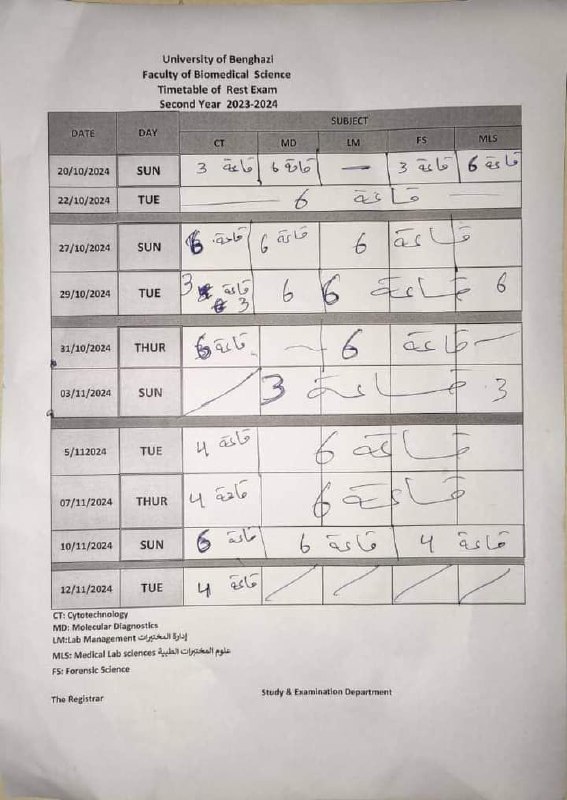 University of Benghazi
Faculty of Biomedical Science
Timetable of Rest Exam
Second Year 2023-2024
DATE DAY SUBJECT
CT MD LM FS MLS
20/10/2024 SUN قاعة 3 قاعة 6 — قاعة 3 قاعة 6
22/10/2024 TUE قاعة 6
27/10/2024 SUN قاعة 6 قاعة 6 قاعة 6
29/10/2024 TUE 3 قاعة 3 6 6 قاعة 6
31/10/2024 THUR قاعة 6 — قاعة 6 —
03/11/2024 SUN / 3 قاعة 3
5/112024 TUE قاعة 4 قاعة 6
07/11/2024 THUR قاعة 4 قاعة 6
10/11/2024 SUN قاعة 6 قاعة 6 قاعة 4
12/11/2024 TUE قاعة 4 / / / /
CT: Cytotechnology
MD: Molecular Diagnostics
LM:Lab Management إدارة المختبرات
MLS: Medical Lab sciences علوم المختبرات الطبية
FS: Forensic Science
The Registrar Study & Examination Department